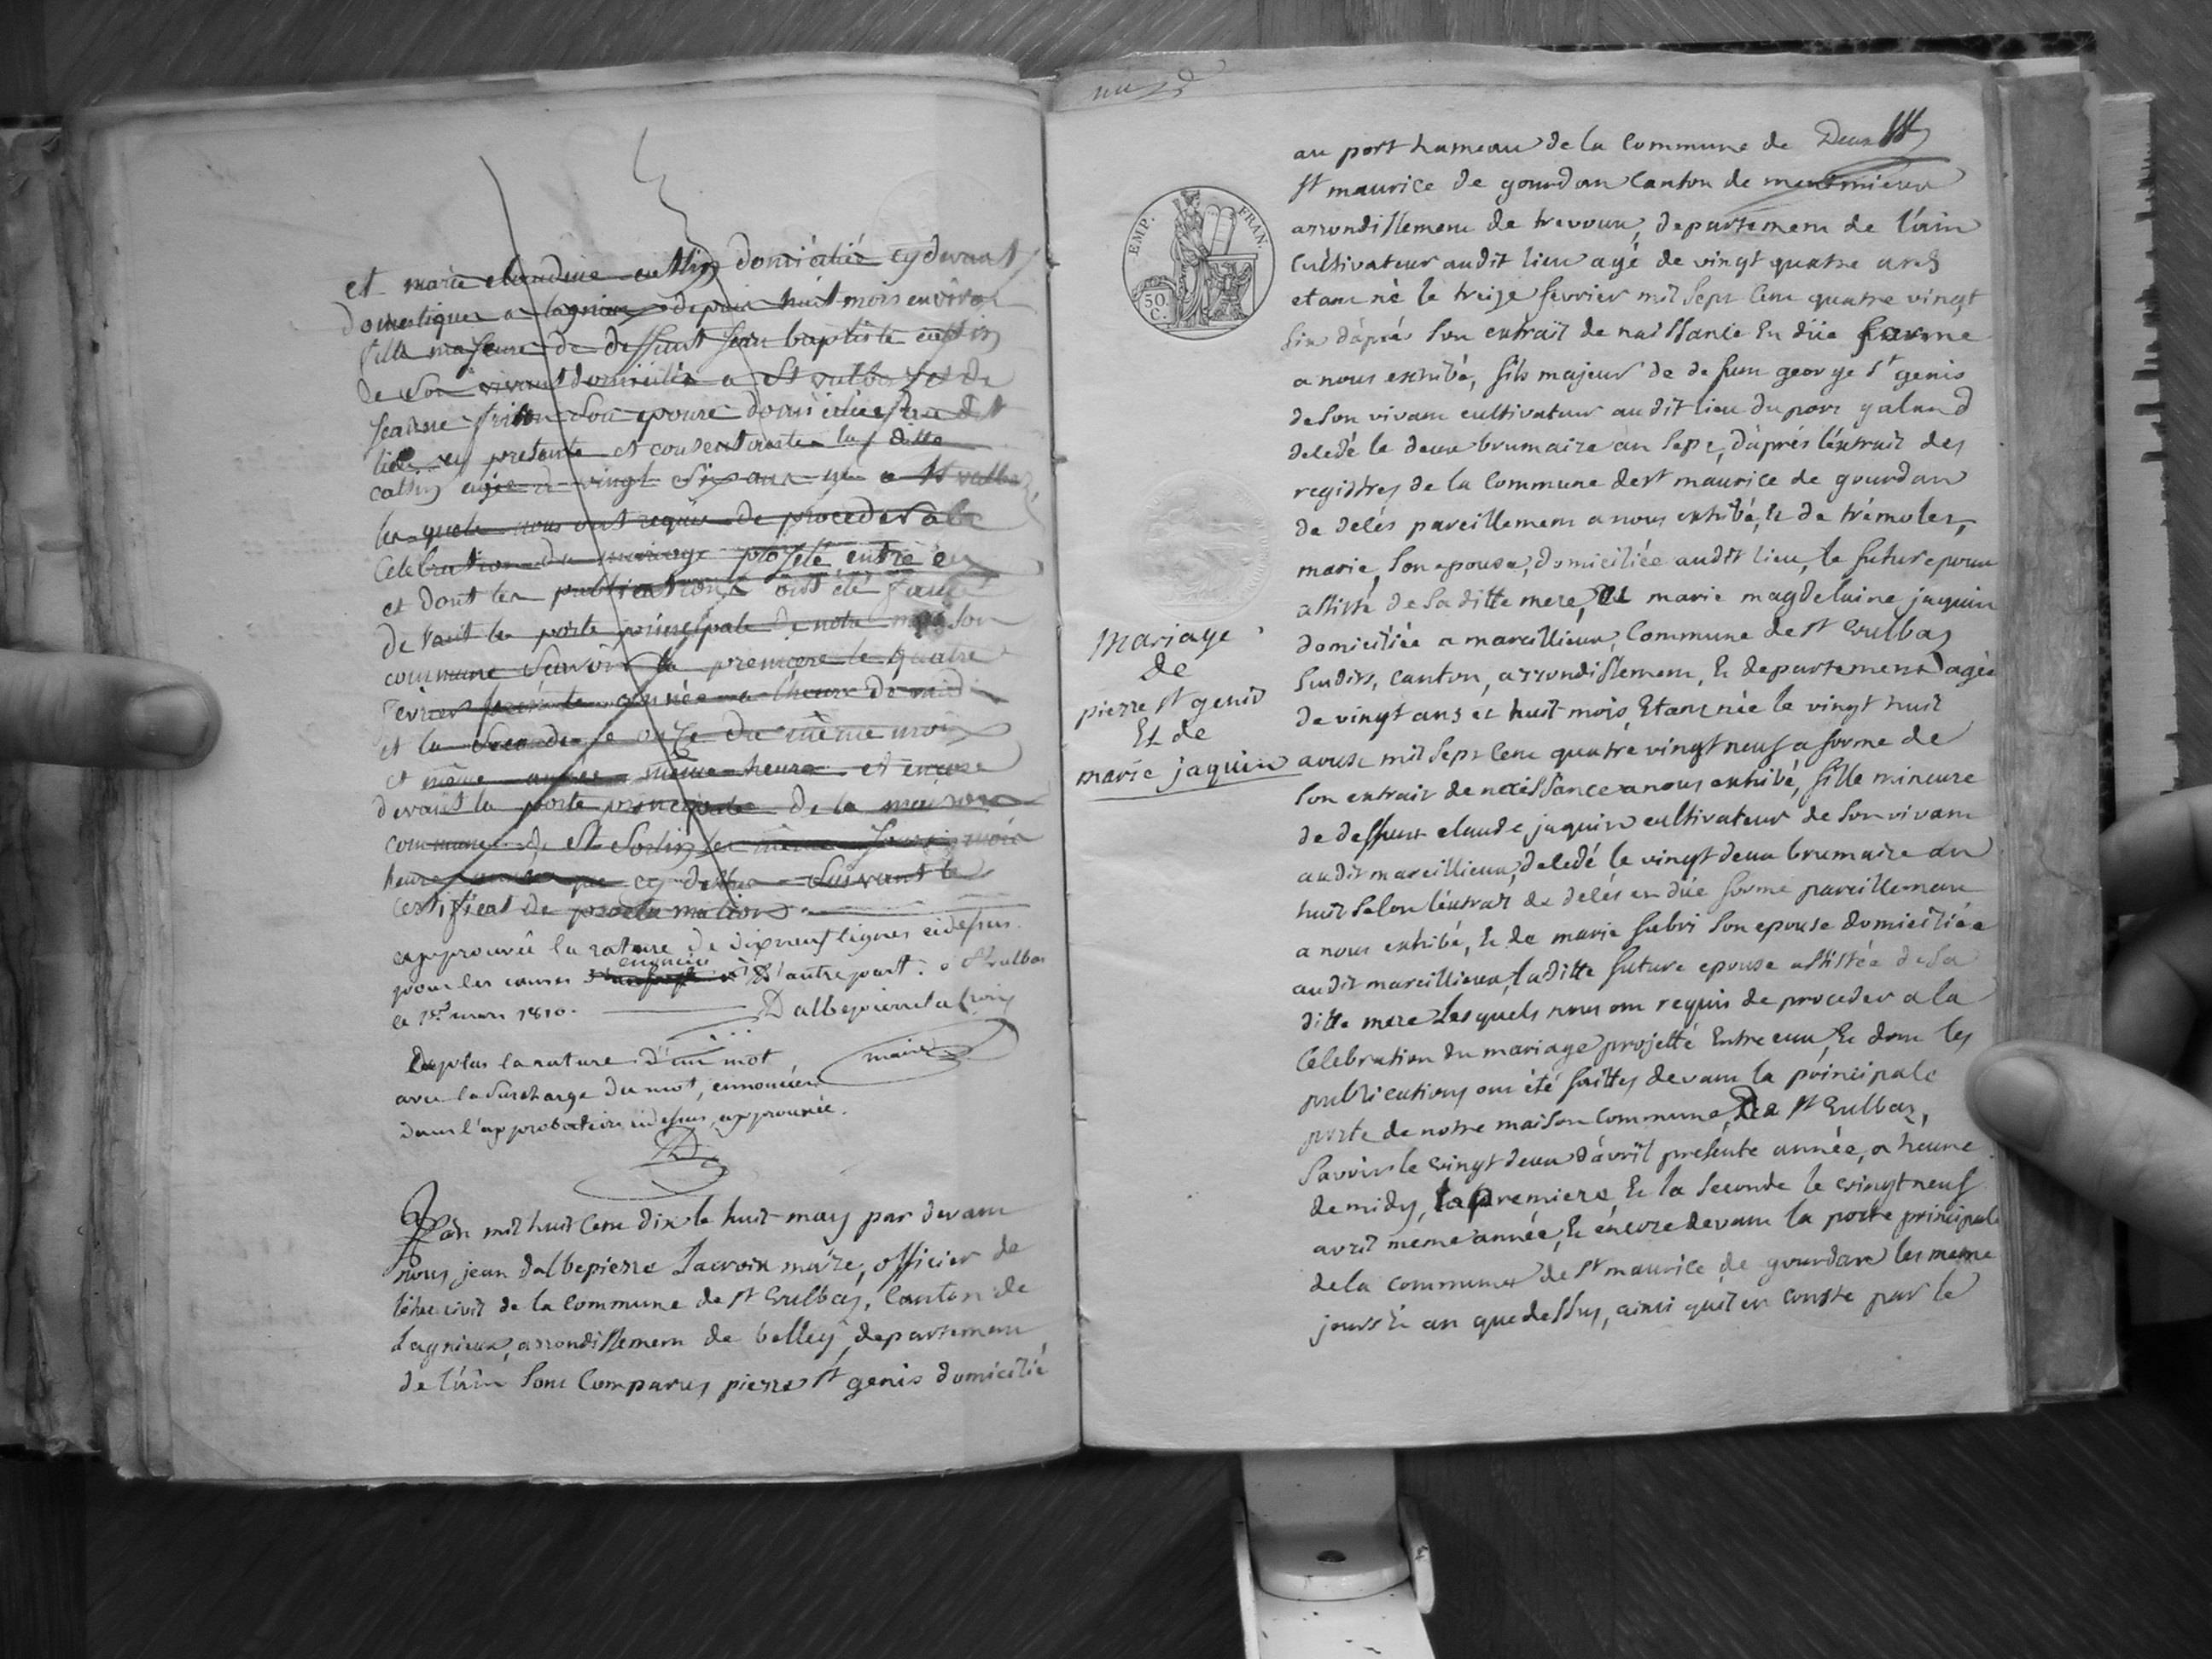 et marie claudine cattin domiciliée cydevant
domestique a lagnieu depuis huit mois environ
fille majeure de deffunt jean baptiste cattin
de son vivant domicilié a St vulbas et de
jeanne son epouse domiciliée au dit
lieu cy presente et consentante la ditte
cattin agée de vingt six ans née a St vulbas
les quels nous ont requis de proceder a la
Celebration du mariage projeté entre eux
et dont les publications ont été faites
devant la porte principale de notre maison
commune savoir la premiere le quatre
fevrier presente année a l'heure de midi
et la seconde le onze du même mois
et même année même heure et encore
devant la porte principale de la maison
commune de St Sorlin les même jours mois
heure que cy dessus suivant le
certificat de proclamations
approuvé la rature de dixneuf lignes cidessus
enoncées
pour les causes d'autre part. a St vulbas
le 1er mars 1810. Dalbepierre lacroix
maire
Deplus la rature d'un mot
avec la surcharge du mot, ennoncées
dans l'approbation cidessus, approuvée.
D
L'an mil huit cent dix le huit may par devant
nous jean dalbepierre Lacroix maire, officier de
l'état civil de la Commune de St Vulbas, Canton de
Lagnieux, arrondissement de belley, departement
de l'ain sont Comparus pierre St genis domicilié
EMP. FRAN.
50.
C.
Mariage
de
pierre St genis
Et de
marie jaquin
au port hameau de la Commune de Deux
St maurice de gourdan Canton de meximieux
arrondissement de trevoux, departement de l'ain
Cultivateur audit lieu agé de vingt quatre ans
etant né le treize fevrier mil sept Cent quatre vingt
six d'apré son extrait de naissance En düe forme
a nous exhibé, fils majeur de defunt george St genis
de son vivant cultivateur audit lieu du port galand
dededé le deux brumaire an sept, d'aprés l'extrait des
registres de la Commune de St maurice de gourdan
de delés pareillement a nous exhibé, Et de trémolet
marie, son epouse, domiciliée audit lieu, le futur epoux
assisté de sa ditte mere, Et marie magdelaine jaquin
domiciliée a marcillieux, Commune de St Vulbas
susdits, canton, arrondissement, Et departement agée
de vingt ans et huit mois, Etant née le vingt huit
aoust mil sept Cent quatre vingt neuf a forme de
son extrait de naissance a nous exhibé, fille mineure
de deffunt claude jaquin cultivateur de son vivant
audit marcillieux, dededé le vingt deux brumaire an
huit selon l'extrait de delés en düe forme pareillement
a nous exhibé, Et de marie son epouse domiciliée
audit marcillieux, laditte future epouse assistée de sa
ditte mere Lesquels nous ont requis de proceder a la
Celebration du mariage projetté Entre eux, Et dont les
publications ont été faittes devant la principale
porte de notre maison Commune De St Vulbas,
savoir le vingt deux d'avril presente année, a heure
de midy, la premiere Et la seconde le vingt neuf
avril meme année, Et encore devant la porte principale
de la commune de St maurice de gourdan les meme
jours Et an que dessus, ainsi quil en conste par le